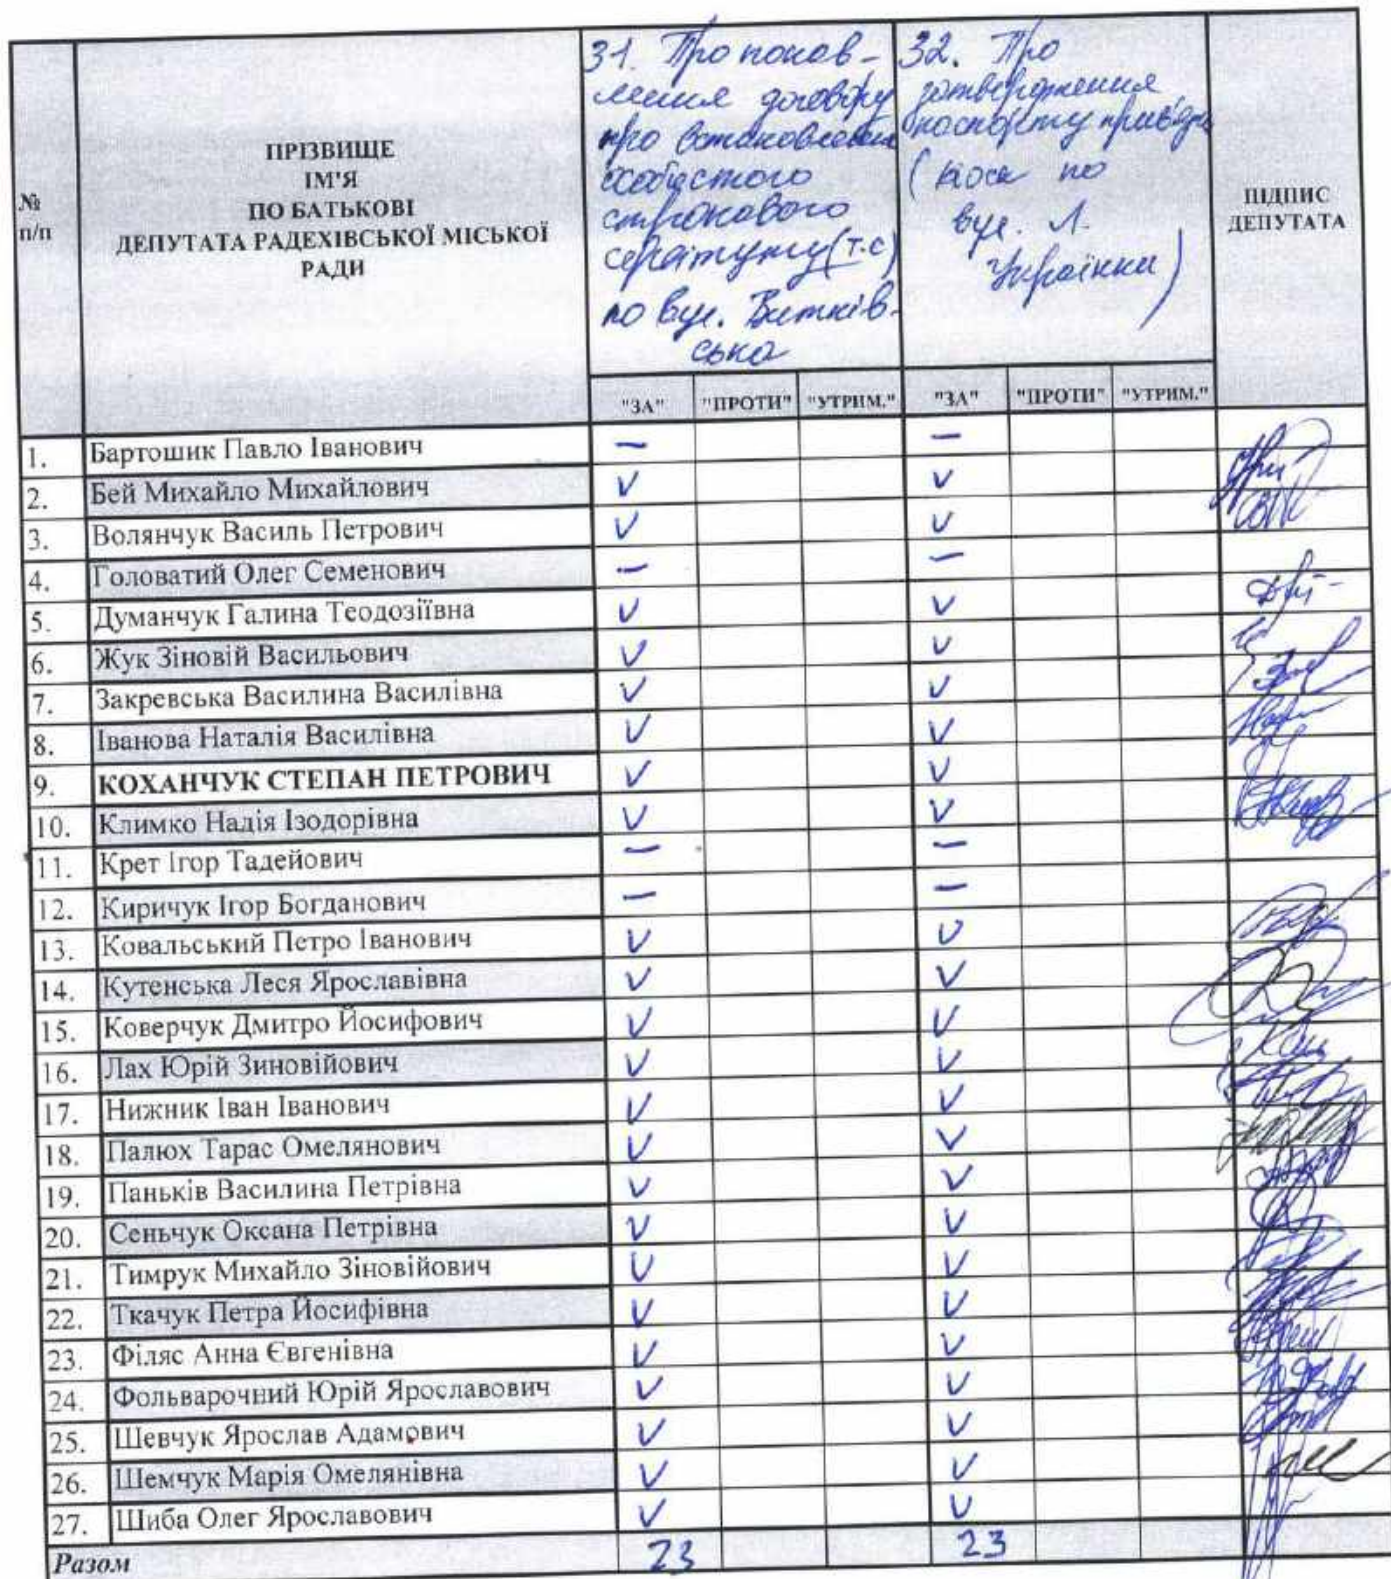 №
п/п
ПРІЗВИЩЕ
ІМ'Я
ПО БАТЬКОВІ
ДЕПУТАТА РАДЕХІВСЬКОЇ МІСЬКОЇ
РАДИ
31. Про понов-
лення договору
про встановлення
особистого
строкового
сервітуту (т.с)
по вул. Витків-
ська
32. Про
затвердження
паспорту прив'язки
(кіоск по
вул. Л.
Українки)
ПІДПИС
ДЕПУТАТА
"ЗА" "ПРОТИ" "УТРИМ." "ЗА" "ПРОТИ" "УТРИМ."
1. Бартошик Павло Іванович – –
2. Бей Михайло Михайлович V V
3. Волянчук Василь Петрович V V
4. Головатий Олег Семенович – –
5. Думанчук Галина Теодозіївна V V
6. Жук Зіновій Васильович V V
7. Закревська Василина Василівна V V
8. Іванова Наталія Василівна V V
9. КОХАНЧУК СТЕПАН ПЕТРОВИЧ V V
10. Климко Надія Ізодорівна V V
11. Крет Ігор Тадейович – –
12. Киричук Ігор Богданович – –
13. Ковальський Петро Іванович V V
14. Кутенська Леся Ярославівна V V
15. Коверчук Дмитро Йосифович V V
16. Лах Юрій Зиновійович V V
17. Нижник Іван Іванович V V
18. Палюх Тарас Омелянович V V
19. Паньків Василина Петрівна V V
20. Сеньчук Оксана Петрівна V V
21. Тимрук Михайло Зіновійович V V
22. Ткачук Петра Йосифівна V V
23. Філяс Анна Євгенівна V V
24. Фольварочний Юрій Ярославович V V
25. Шевчук Ярослав Адамович V V
26. Шемчук Марія Омелянівна V V
27. Шиба Олег Ярославович V V
Разом 23 23